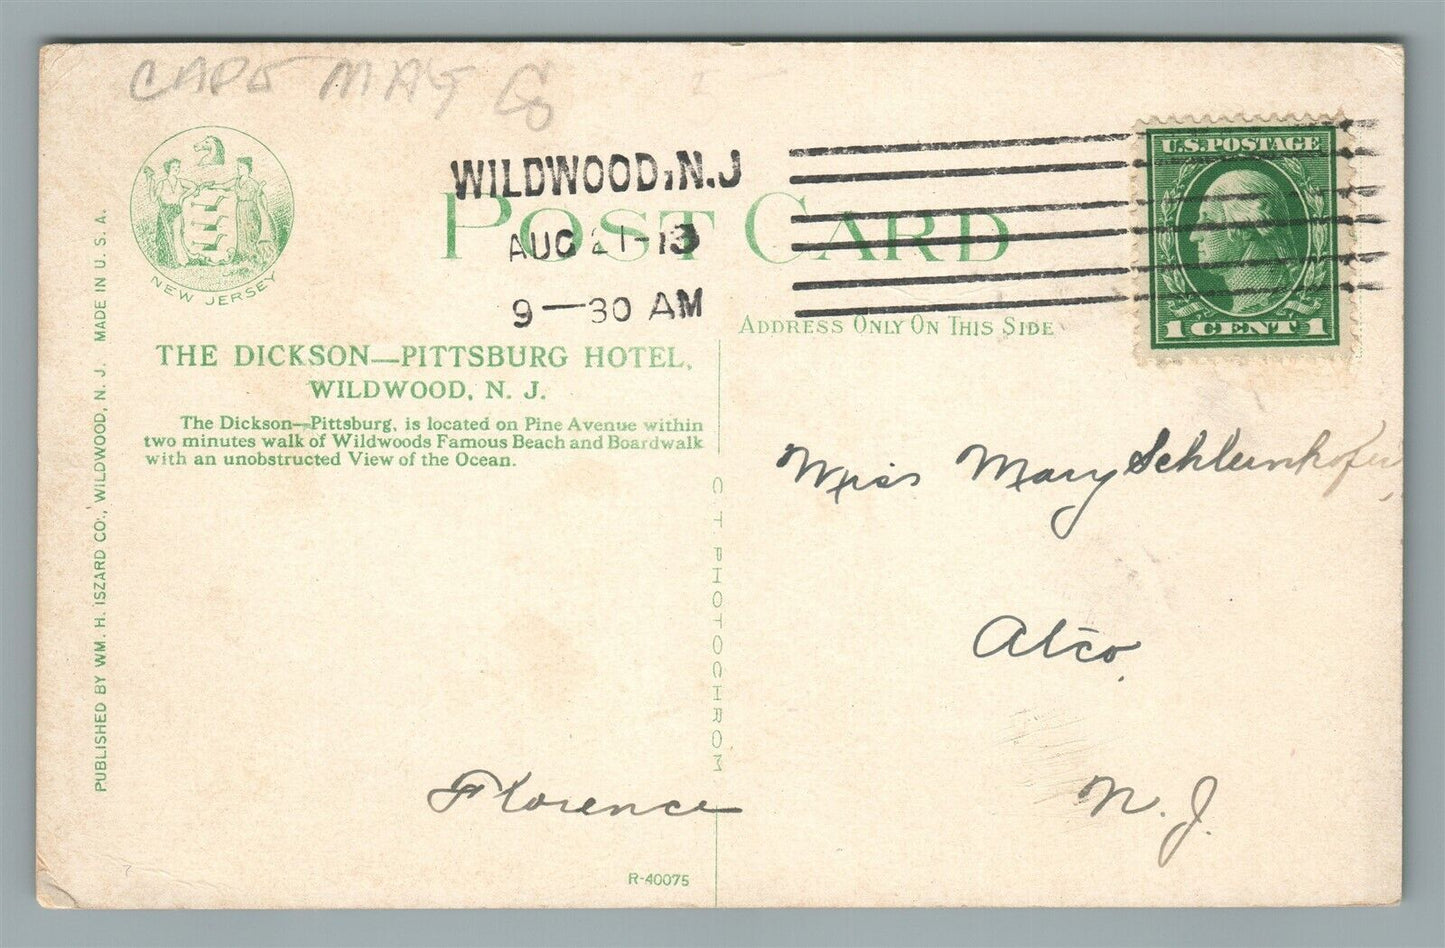 CAPE MAY Co
WILDWOOD, N.J
AUG 21-13
9—30 AM
U.S. POSTAGE
1 CENT 1
NEW JERSEY
POST CARD
ADDRESS ONLY ON THIS SIDE
THE DICKSON—PITTSBURG HOTEL,
WILDWOOD, N. J.
The Dickson—Pittsburg, is located on Pine Avenue within
two minutes walk of Wildwoods Famous Beach and Boardwalk
with an unobstructed View of the Ocean.
PUBLISHED BY WM. H. ISZARD CO., WILDWOOD, N. J. MADE IN U. S. A.
C T PHOTOCHROM
Miss Mary
Atco,
N. J.
Florence
R-40075